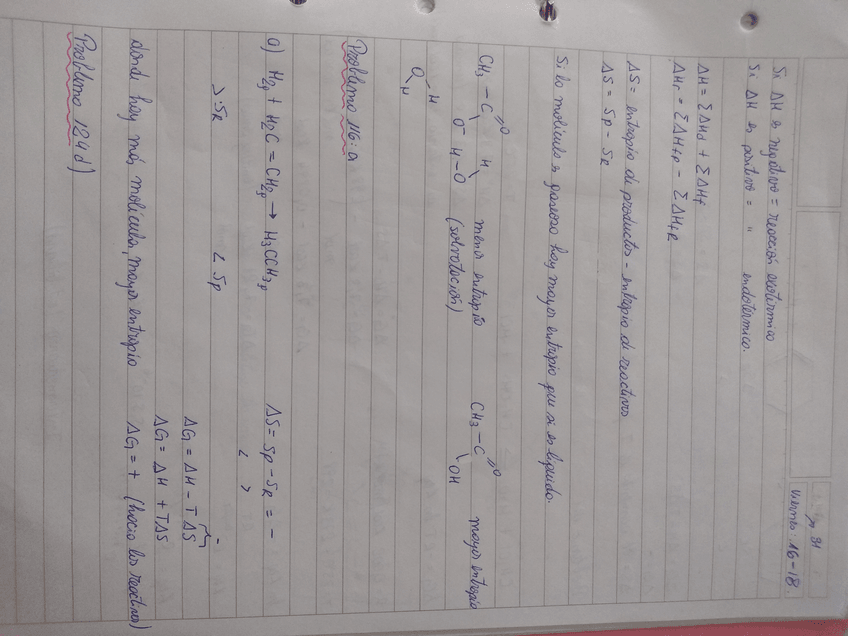 31
Viernes: 16-18
Si ΔH es negativo = reacción exotermica
Si ΔH es positivo = " endotermica.
ΔH = ΣΔHd + ΣΔHf
ΔHr = ΣΔHfP - ΣΔHfR
ΔS = entropia de productos - entropia de reactivos
ΔS = Sp - SR
Si la molecula es gaseosa hay mayor entropia que si es liquida.
CH3 - C O O- H - O H menor entropia (solvatación)
CH3 - C O OH mayor entropia
O H H
Problema 116: a
a) H2g + H2C = CH2g → H3CCH3g ΔS = Sp - SR = -
< >
> SR < Sp
ΔG = ΔH - TΔS
-
ΔG = ΔH + TΔS
donde hay más molecula, mayor entropia ΔG = + (hacia los reactivos)
Problema 124d)